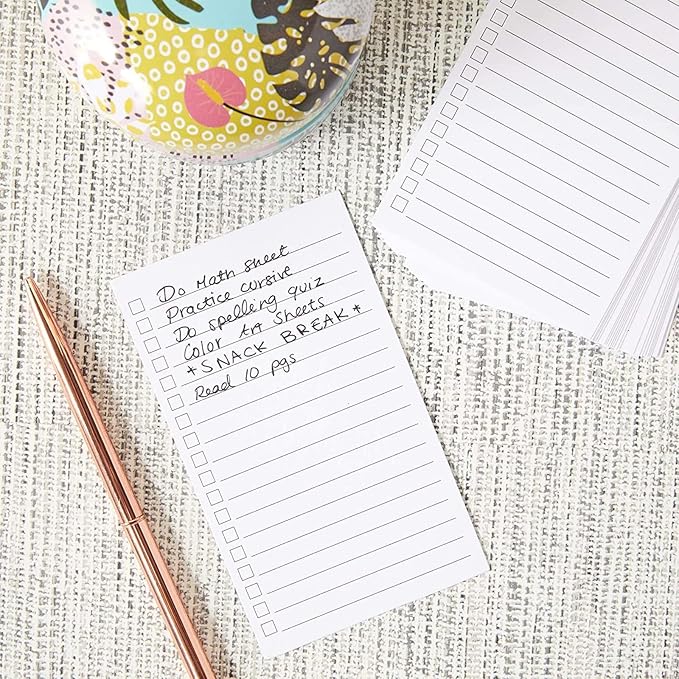 Do Math sheet
Practice cursive
Do spelling quiz
Color Art Sheets
* SNACK BREAK *
Read 10 pgs